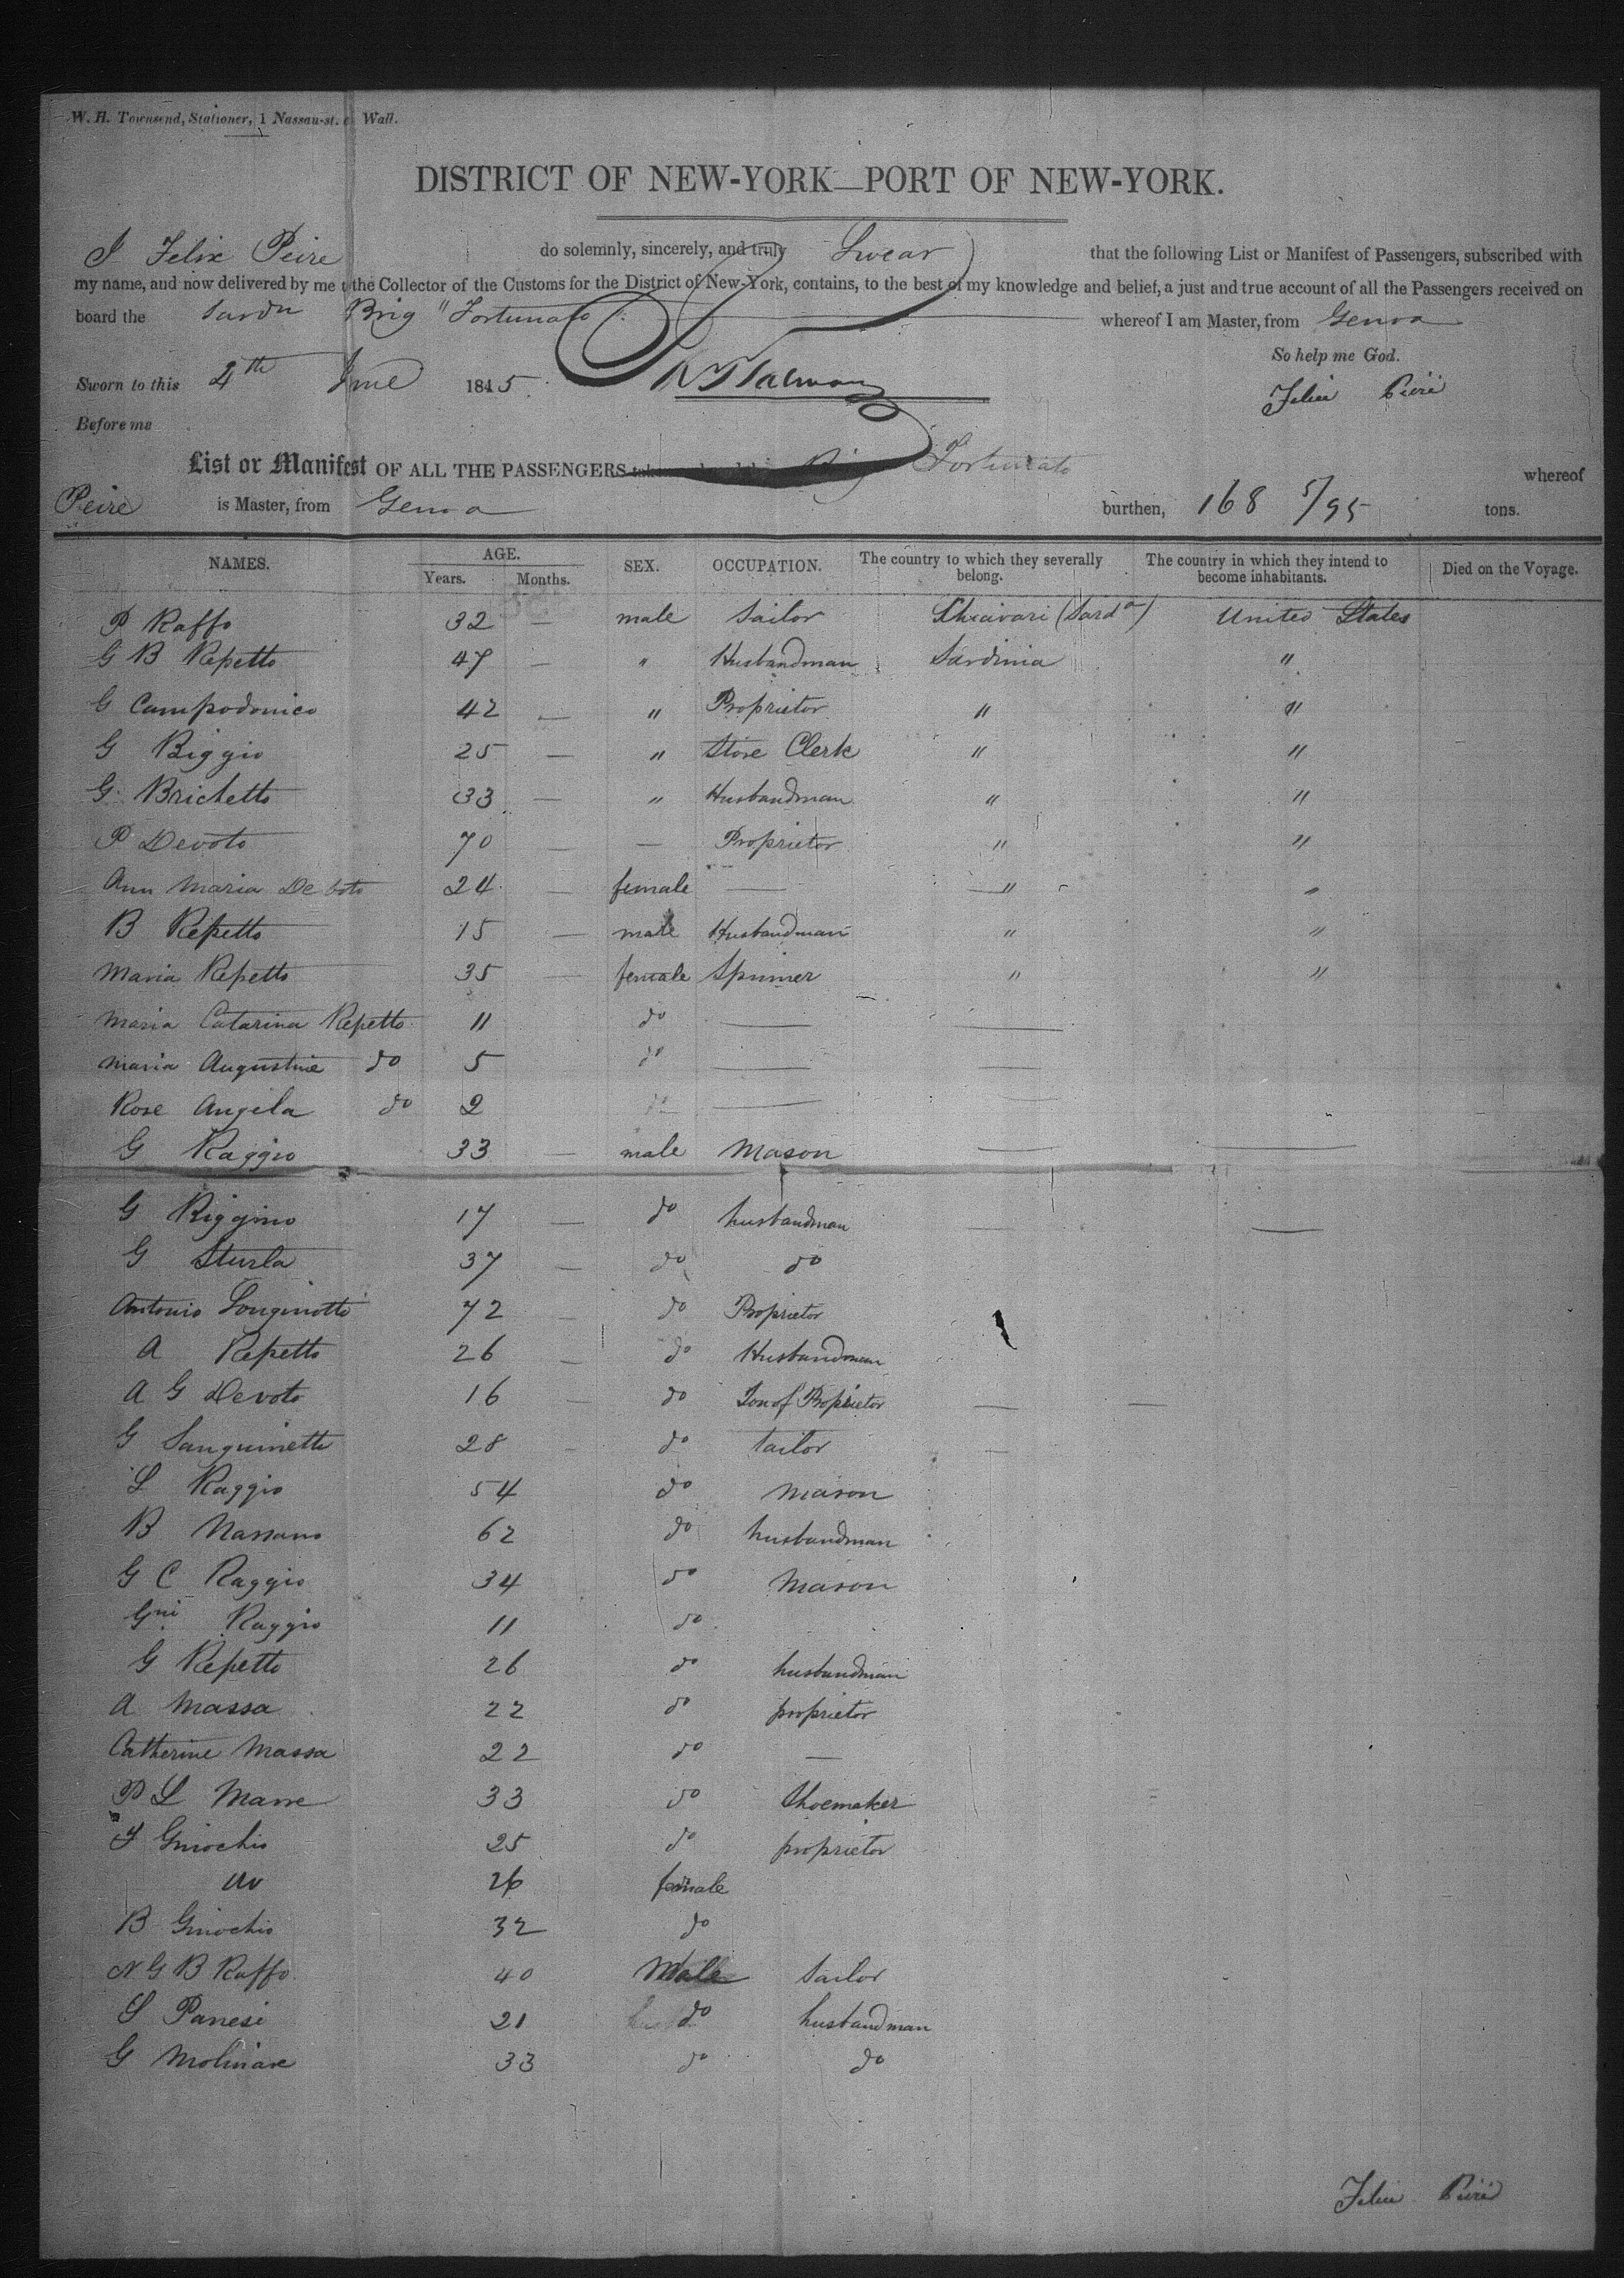 W. H. Townsend, Stationer, 1 Nassau-st. c. Wall.
DISTRICT OF NEW-YORK—PORT OF NEW-YORK.
I Felix Peire do solemnly, sincerely, and truly Swear that the following List or Manifest of Passengers, subscribed with
my name, and now delivered by me t the Collector of the Customs for the District of New-York, contains, to the best of my knowledge and belief, a just and true account of all the Passengers received on
board the Sardn Brig "Fortunato" whereof I am Master, from Genoa
So help me God.
Sworn to this 4th June 1845.
Felix Peire
Before me
List or Manifest OF ALL THE PASSENGERS Brig Fortunato whereof
Peire is Master, from Genoa burthen, 168 5/95 tons.
NAMES. AGE. Years. Months. SEX. OCCUPATION. The country to which they severally belong. The country in which they intend to become inhabitants. Died on the Voyage.
P Raffo 32 — male Sailor Chiavari (Sarda) United States
G B Repetto 47 — " Husbandman Sardinia "
G Campodonico 42 — " Proprietor " "
G Biggio 25 — " Store Clerk " "
G. Brichetto 33 — " Husbandman " "
P Devoto 70 — — Proprietor " "
Ann Maria Devoto 24 — female — " "
B Repetto 15 — male Husbandman " "
Maria Repetto 35 — female Spinner " "
Maria Catarina Repetto 11 do — —
Maria Augustine do 5 do — —
Rose Angela do 2 do — —
G Raggio 33 — male Mason — —
G Riggino 17 — do husbandman — —
G Sturla 37 — do do
Antonio Longinotti 72 — do Proprietor
A Repetto 26 — do Husbandman
A G Devoto 16 — do Son of Proprietor — —
G Sanguinetti 28 — do tailor —
L Raggio 54 do mason
B Nassano 62 do husbandman
G C Raggio 34 do Mason
Gni Raggio 11 do
G Repetto 26 do husbandman
A Massa 22 do proprietor
Catherine Massa 22 do —
P L Marre 33 do Shoemaker
Ginochio 25 do proprietor
do 26 female
B Ginochio 32 do
N G B Raffo 40 Male Sailor
S Panesi 21 do husbandman
G Molinare 33 do do
Felix Peire